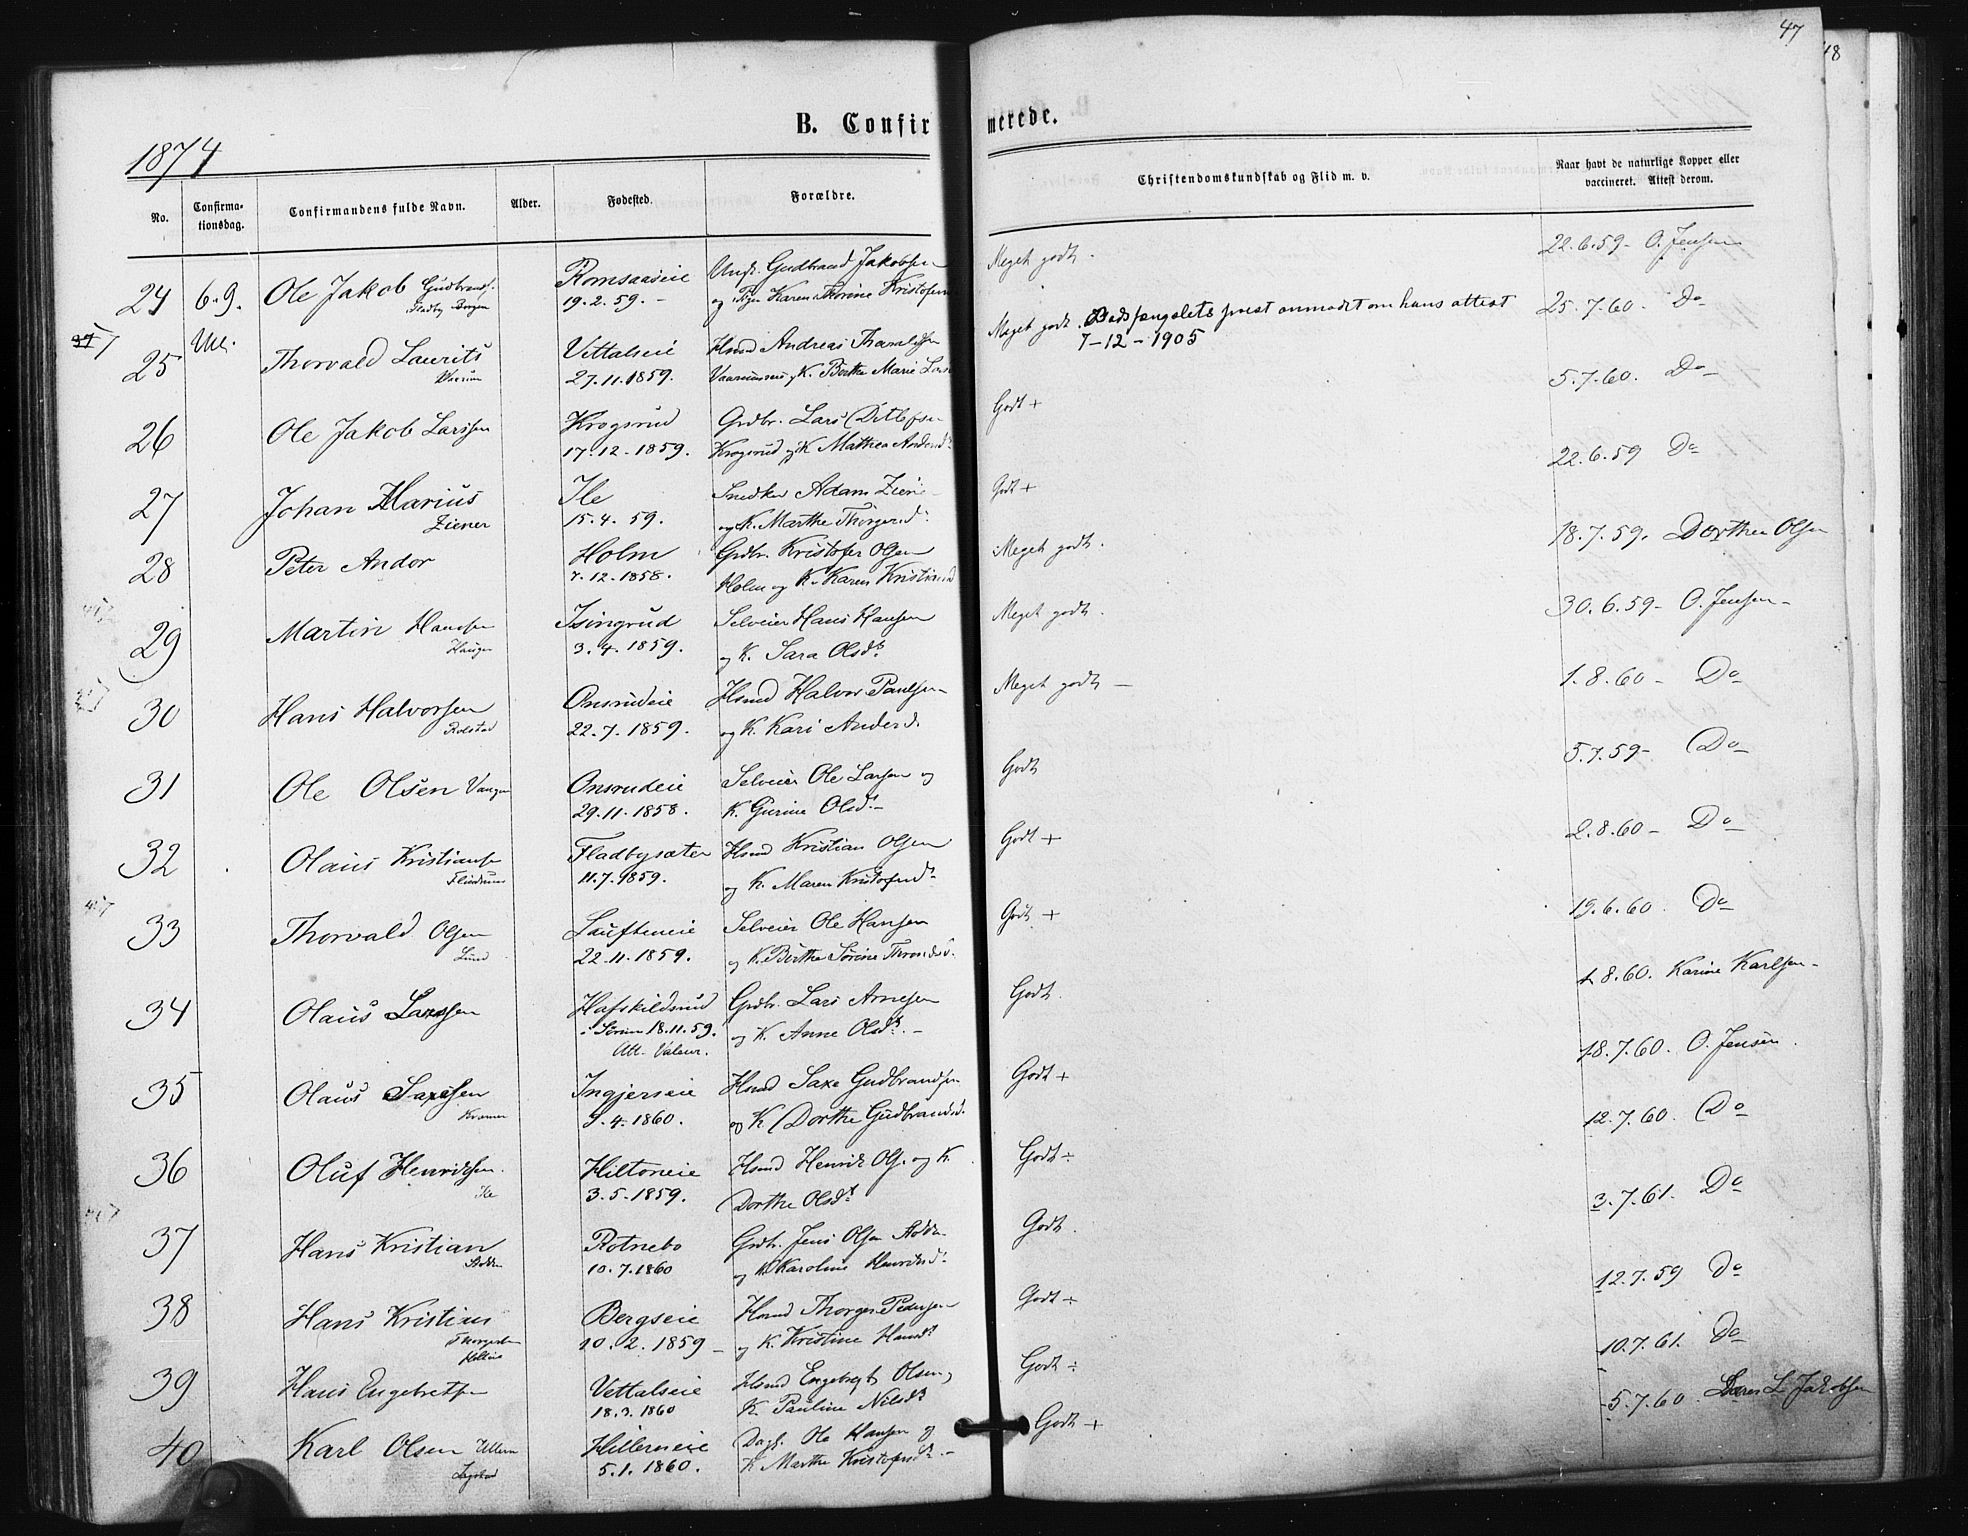 47
48
1874
B. Confirmerede.
No. Confirmationsdag. Confirmandens fulde Navn. Alder. Fødested. Forældre. Christendomskundskab og Flid m. v. Naar havt de naturlige Kopper eller vaccineret. Attest derom.
24 6.9. Ole Jakob Gudbrands. Romsaaseie Ungk. Gudbrand Jakobsen Meget godt. 22.6.59- O. Jensen
Fladby 19.2.59.- og Pige Karen Thorine Kristofersd
Ull.
25 Thorvald Laurits Vettalseie Hsmd Andreas Meget godt. Bodsfængslets prest anmodet om hans attest 25.7.60. Do
27.11.1859. K. Birthe Marie 7-12-1905
26 Ole Jakob Larssen Krogsrud Grdbr. Lars Ditlefsen Godt + 5.7.60. Do
17.12.1859. Krogsrud og K. Mathea Andersd.
27 Johan Marius Ile Snedker Adam Ziener Godt + 22.6.59 Do
Ziener 15.4.59. og K. Marthe Thorgersd.
28 Peter Andor Holm Grdbr. Kristofer Olsen Meget godt. 18.7.59. Dorthea Olsen
7.12.1858. Holm og K. Karen Kristiansd
29 Martin Hansen Isingrud Selveier Hans Hansen Meget godt. 30.6.59- O. Jensen
Haugen 3.4.1859. og K. Sara Olsdt
30 Hans Halvorsen Onsrudeie Hsmd Halvor Paulsen Meget godt - 1.8.60- Do
Rolstad 22.7.1859. og K. Kari Andersd.
31 Ole Olsen Vangen Onsrudeie Selveier Ole Larsen og Godt 5.7.59- Do
29.11.1858. K. Gurine Olsdt
32 Olaus Kristiansen Fladbysæter Hsmd Kristian Olsen Godt + 2.8.60- Do
11.7.1859. og K. Maren Kristofersdt
33 Thorvald Olsen Selveier Ole Hansen Godt + 19.6.60. Do
Lund 22.11.1859. og K. Birthe Sørine Throndsd.
34 Olaus Larssen Hafskildsrud Grdbr. Lars Arnesen Godt. 1.8.60. Karine Karlsen
i Sørum 18.11.59. og K. Anne Olsdt.
Att. Valeur.
35 Olaus Saxesen Ingjerseie Hsmd Saxe Gudbrandsen Godt + 18.7.60. O. Jensen
9.4.1860. og K Dorthe Gudbrandsd.
36 Oluf Henriksen Hiltoneie Hsmd Henrik Ols. og K. Godt ÷ 12.7.60. Do
Ile 3.5.1859. Dorthe Olsdt
37 Hans Kristian Rotnebo Grdb. Jens Olsen Godt. 3.7.61. Do
10.7.1860 og K. Karoline Henriksd.
38 Hans Kristian Bergseie Hsmd Thorger Pedersen Godt ÷ 12.7.59 Do
Thorgersen 10.2.1859- og K. Kristine Hansdt
39 Hans Engebretsen Vettalseie Hsmd Engebregt Olsen, Godt ÷ 10.7.61. Do
18.3.1860 K. Pauline Nilsdt
40 Karl Olsen Ullern Hillerneie Dagl. Ole Hansen og Godt + 5.7.60. L. Jakobsen
5.1.1860. K Marthe Kristofersdt.